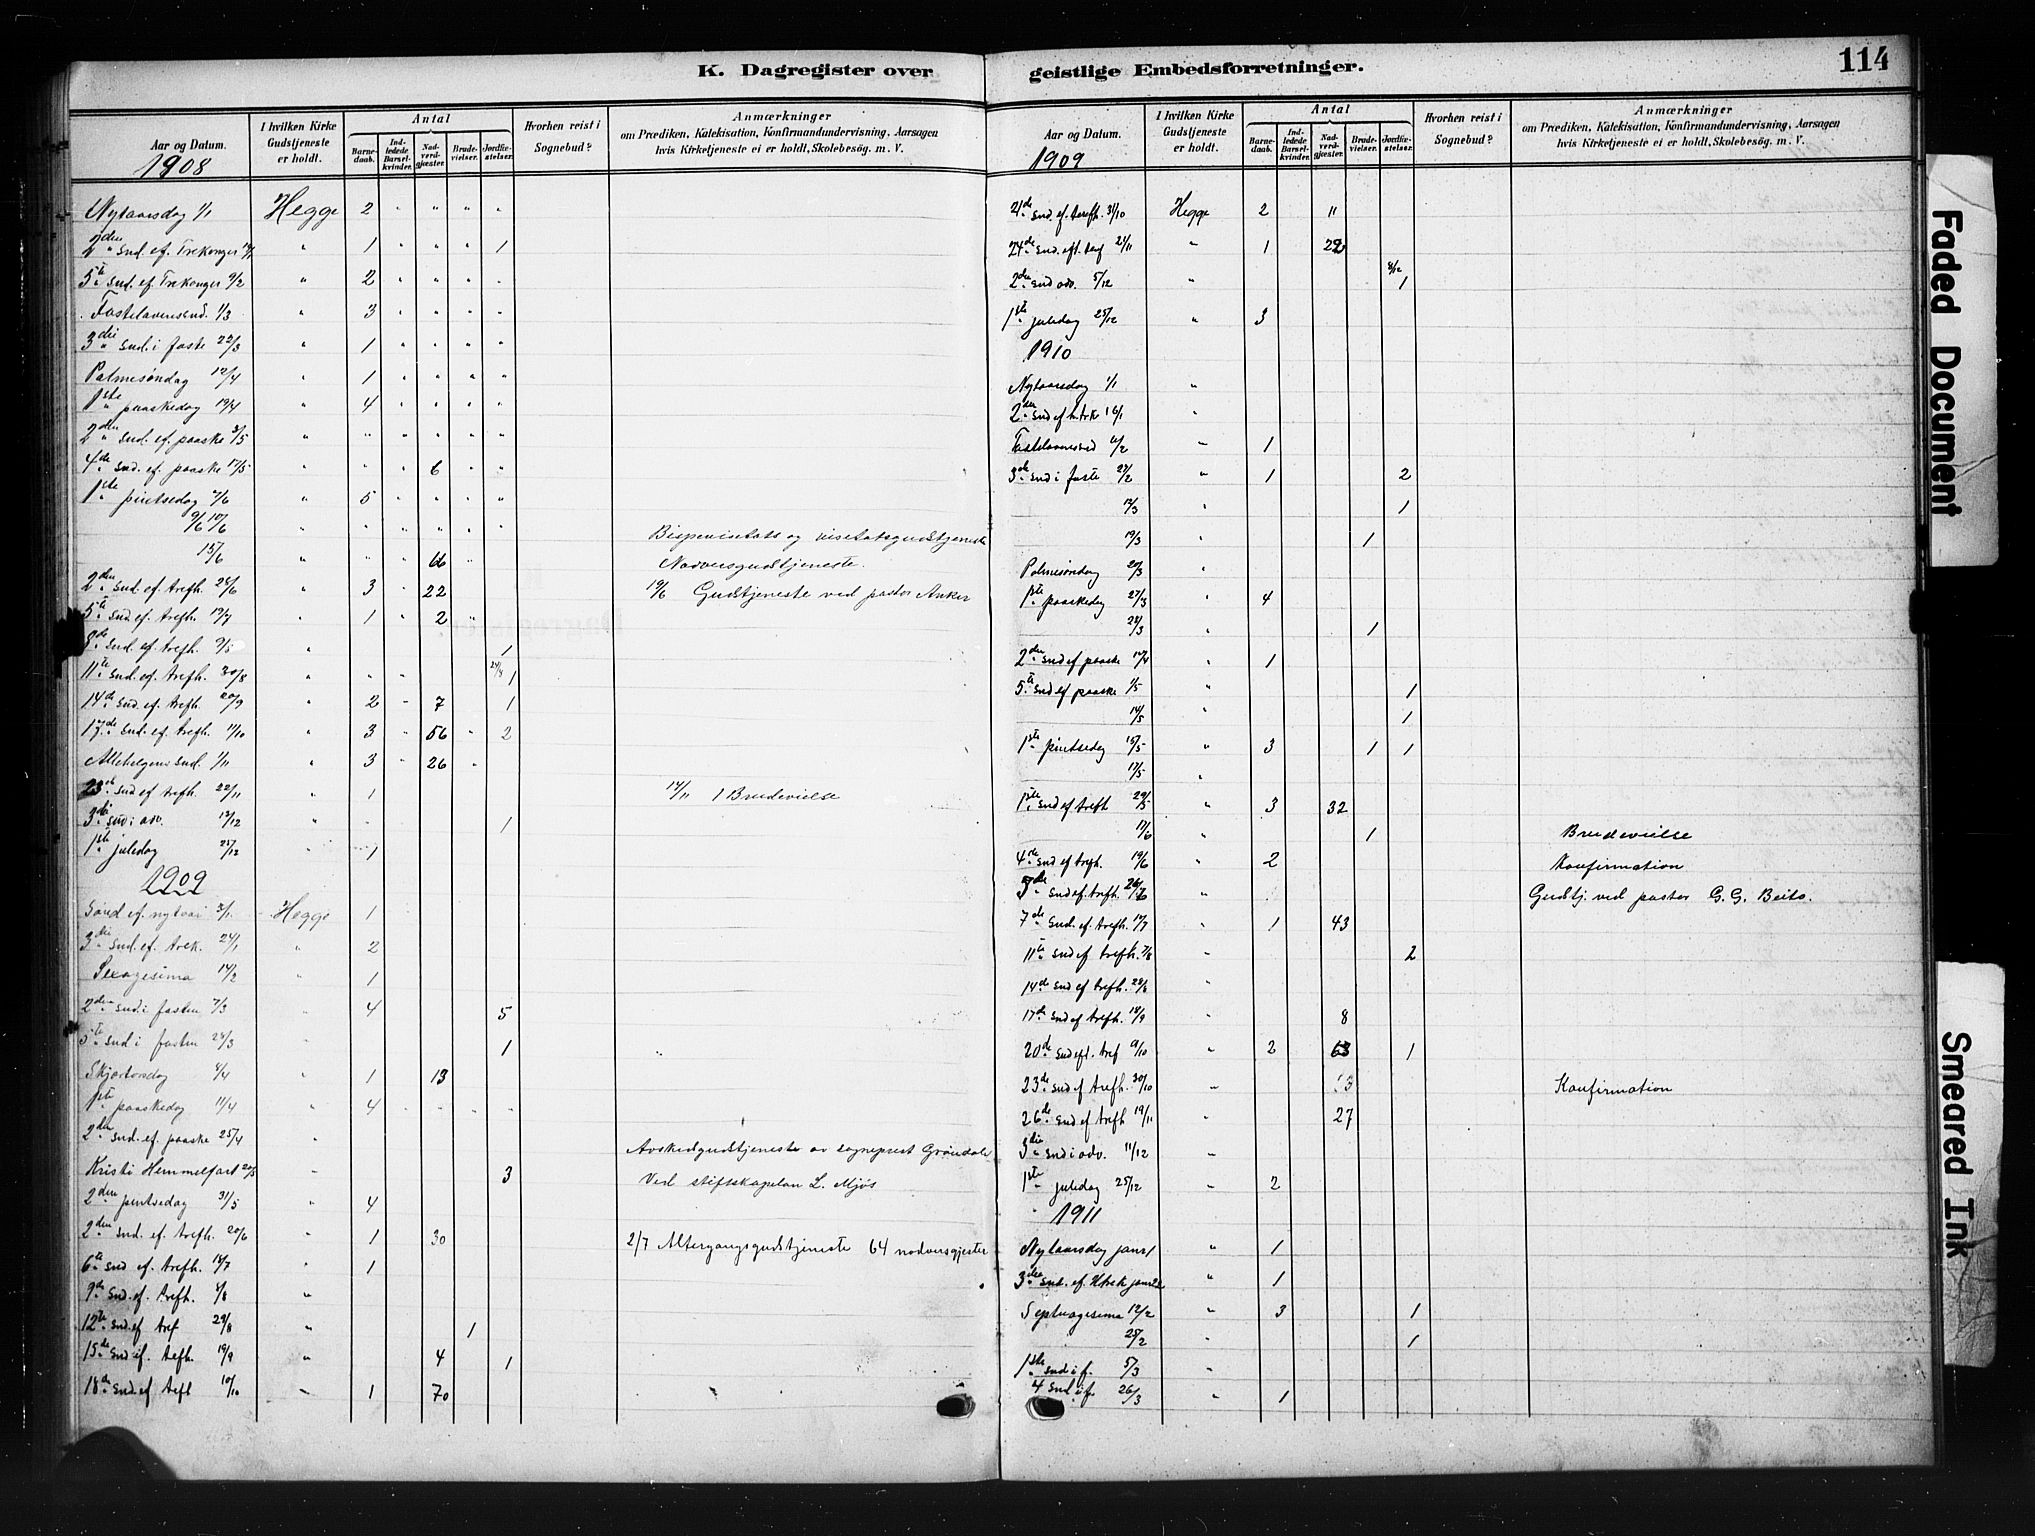 K. Dagregister over geistlige Embedsforretninger.
114
Aar og Datum.
1908
I hvilken Kirke Gudstjeneste er holdt.
Antal
Barne-daab.
Ind-ledede Barsel-kvinder.
Nad-verd-gjæster.
Brude-vielser.
Jordfæ-stelser.
Hvorhen reist i Sognebud?
Anmærkninger
om Prædiken, Katekisation, Konfirmandundervisning, Aarsagen
hvis Kirketjeneste ei er holdt, Skolebesøg. m. V.
Nytaarsdag 1/1 Hegge 2 " " " "
2den Snd. ef. Trekonger " 1 " " " 1
5te Snd. ef. Trekonger 9/2 " 2 " " " "
Fastelavenssnd. 1/3 " 3 " " " "
3die Snd. i faste 22/3 " 1 " " " "
Palmesøndag 12/4 " 1 " " " "
1ste paaskedag 19/4 " 4 " " " "
2den Snd. ef. paaske 3/5 " " " " " "
4de Snd. ef. paaske 17/5 " " " 6 " "
1ste pintsedag 7/6 " 5 " " " "
9/6 10/6 " " " " " " Bispevisitats og visitatsgudstjeneste
15/6 " " " 66 " Nadversgudstjeneste.
2den Snd. ef. trefh. 28/6 " 3 " 22 19/6 Gudstjeneste ved pastor Anker
5te Snd. ef. trefh. 19/7 " 1 " 2 "
8de Snd. ef. trefh. 9/8 " 1
11te Snd. ef. trefh. 30/8 " " " 24/8 1
14de Snd. ef. trefh. 20/9 " 2 " 7 1
17de Snd. ef. trefh. 11/10 " 3 " 56 " 2
Allehelgens snd. 1/11 " 3 " 26 "
23de Snd ef trefh. 22/11 " 1 14/11 1 Brudevielse
3die Snd i adv. 13/12 " 1
1ste juledag 25/12 " 1
1909
Sønd ef. nytaar 3/1 Hegge 1
3die Snd. ef. trek. 24/1 " 2
Sexagesima 14/2 " 1
2den snd. i fasten 7/3 " 4 5
5te Snd i fasten 28/3 " 1
Skjærtorsdag 8/4 " 1 13
1ste paaskedag 11/4 " 4 " " " "
2den Snd. ef. paaske 25/4 " Avskedsgudstjeneste av sogneprest Grøndahl
Kristi Hemmelfart 20/5 " 3 Ved stiftskapelan L. Mjøs
2den pintsedag 31/5 " 4
2den Snd. ef. trefh. 20/6 " 1 30 2/7 Altergangsgudstjeneste 64 nadversgjester
6te Snd ef. trefh. 18/7 " 1
9de Snd. ef. trefh. 8/8 "
12te Snd. ef tref 29/8 " 1
15de Snd. ef. trefh. 19/9 " 4 1
18de Snd. ef trefh 10/10 " 1 70
Aar og Datum.
1909
I hvilken Kirke Gudstjeneste er holdt.
Antal
Barne-daab.
Ind-ledede Barsel-kvinder.
Nad-verd-gjæster.
Brude-vielser.
Jordfæ-stelser.
Hvorhen reist i Sognebud?
Anmærkninger
om Prædiken, Katekisation, Konfirmandundervisning, Aarsagen
hvis Kirketjeneste ei er holdt, Skolebesøg. m. V.
21de Snd. ef. trefh. 31/10 Hegge 2 11
24de Snd. eft. tref 21/11 " 1 22
2den Snd adv. 5/12 " 8/12 1
1ste juledag 25/12 " 3
1910
Nytaarsdag 1/1 "
2den Snd ef h. trk 16/1 "
Fastelavenssnd 6/2 " 1
3de Snd i faste 27/2 " 1 2
12/3 " 1
19/3 " 1
Palmesøndag 20/3 "
1ste paaskedag 27/3 " 4
28/3 " 1
2den Snd ef paaske " 1
5te Snd ef paaske 1/5 " 1
14/5 " 1
1ste pintsedag 15/5 " 3 1 1
17/5 "
1ste Snd ef trefh 29/5 " 3 32
17/6 " 1 Brudevielse
4de Snd ef trefh. 19/6 " 2 Konfirmation
5de Snd ef. trefh. 26/6 " Gudstj. ved pastor G. G. Beito.
7de Snd. ef. trefh. 17/7 " 1 43
11te Snd ef trefh. 7/8 " 2
14de Snd ef trefh. 28/8 "
17de Snd ef trefh. 18/9 " 8
20de Snd ef. tref 9/10 " 2 63 1
23de Snd ef trefh. 30/10 " 13 Konfirmation
26de Snd ef trefh 19/11 " 27
3die Snd i adv. 11/12 "
1ste juledag 25/12 " 2
1911
Nytaarsdag jan 1 " 1
3die Snd. ef. H trek jan 22 " 1
Septuagesima 12/2 " 3 1
25/2 " 1
1ste snd i f. 5/3 "
4 Snd. i f. 26/3 " 1
Faded Document
Smeared Ink